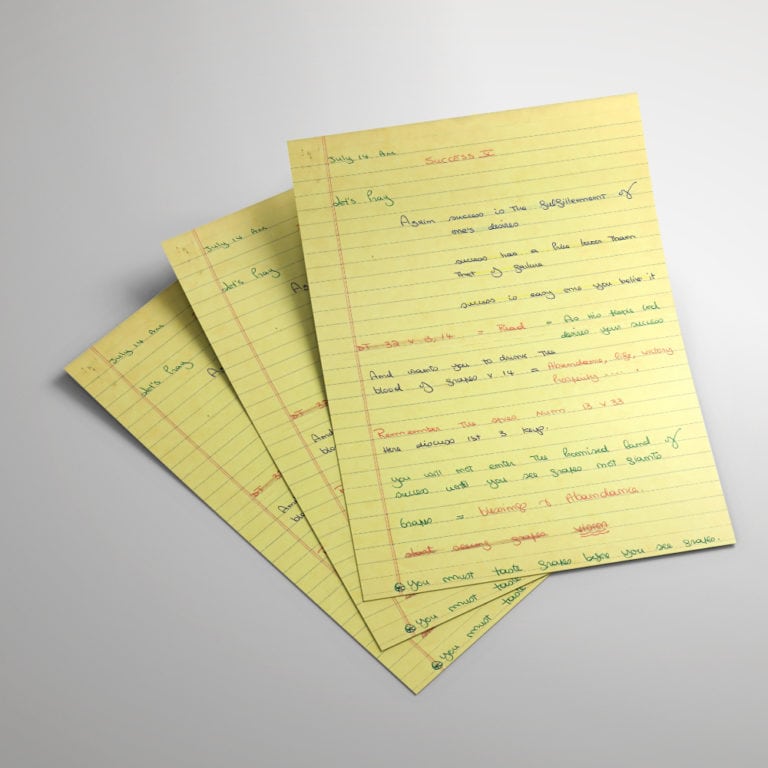 July 14 Am
SUCCESS V
Let's Pray
Again success is the fulfillment of
one's desires
success has a price lower than
that of failure
success is easy once you believe it
DT 32 v 13, 14 = Read = As His people God
desires your success
And wants you to drink the
blood of grapes v 14 = Abundance, life, victory
Prosperity .....
Remember the spies Num 13 v 33
Here discuss 1st 3 keys.
You will not enter the Promised land of
success until you see grapes not giants
Grapes = blessings & Abundance.
start seeing grapes vision
You must taste grapes before you see grapes.
July 14 Am
Let's Pray
You must taste
July 14 Am
Let's Pray
You must taste